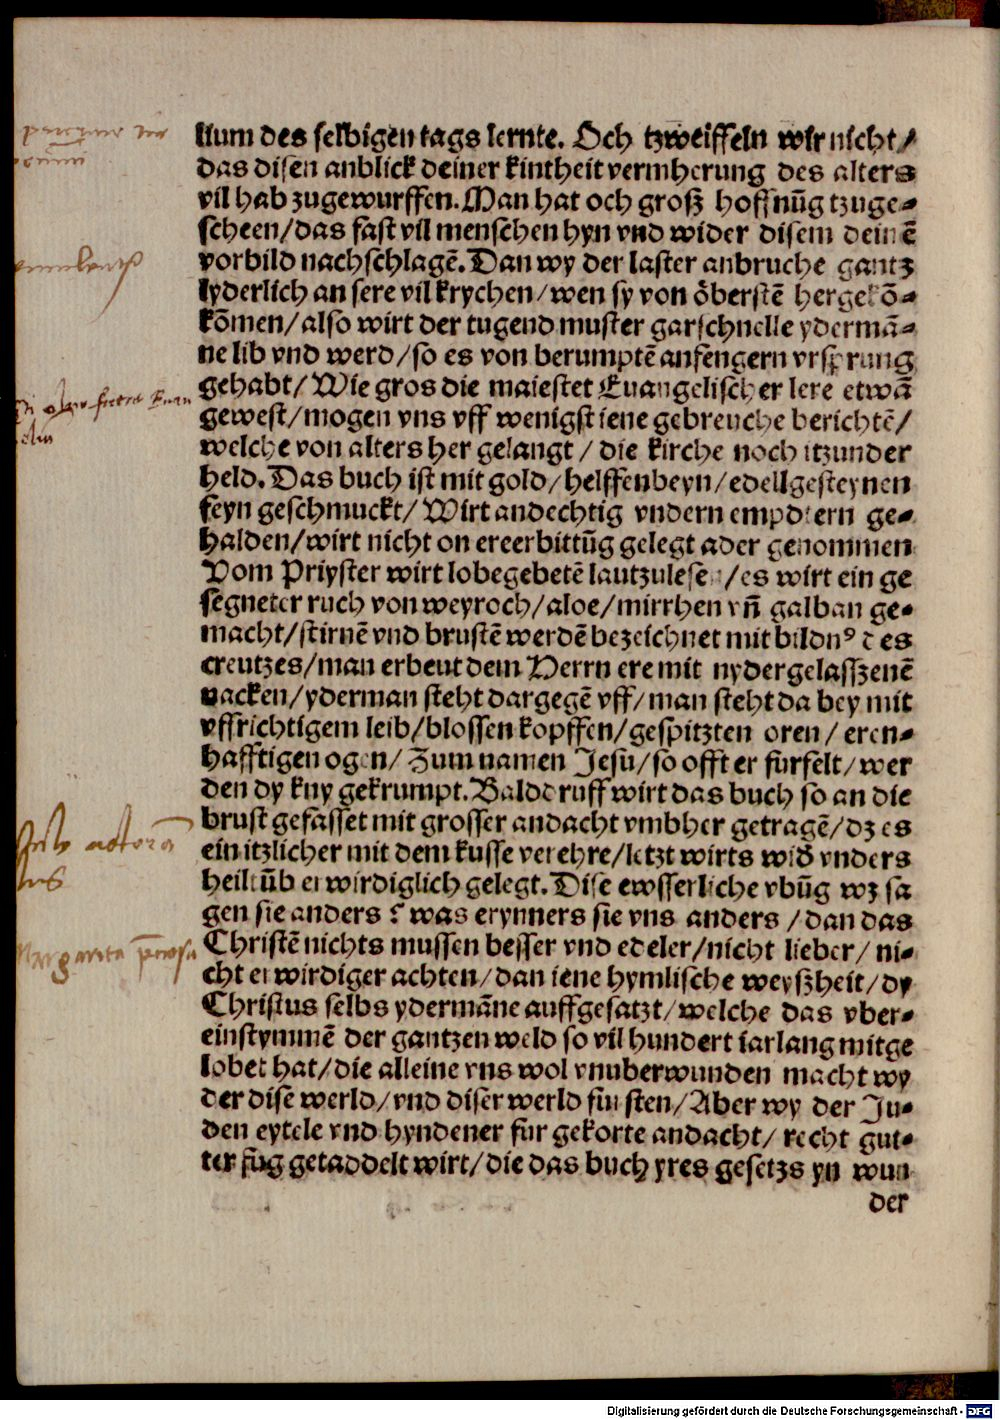 lium des selbigen tags lernte. Och tzweiffeln wir nicht/
das disen anblick deiner kintheit vermherung des alters
vil hab zugewurffen. Man hat och groß hoffnūg tzuge-
scheen/das fast vil menschen hyn vnd wider disem deinē
vorbild nachschlagē. Dan wy der laster anbruche gantz
lyderlich an sere vil krychen/wen sy von öberstē hergekō-
kōmen/also wirt der tugend muster gar schnelle ydermā-
ne lib vnd werd/so es von berumptē anfengern vrsprung
gehabt/Wie gros die maiestet Euangelischer lere etwā
gewest/mogen vns vff wenigst iene gebreuche berichtē/
welche von alters her gelangt / die kirche noch itzunder
held. Das buch ist mit gold/helffenbeyn/edellgesteynen
feyn geschmuckt/Wirt andechtig vndern empdtern ge-
halden/wirt nicht on ereerbittūg gelegt ader genommen
Vom Priyster wirt lobegebetē lautzulesen/es wirt ein ge
segneter ruch von weyroch/aloe/mirrhen vñ galban ge-
macht/stirnē vnd brustē werdē bezeichnet mit bildnꝰ des
creutzes/man erbeut dem Herrn ere mit nydergelasszenē
nacken/yderman steht dargegē vff/man steht da bey mit
vffrichtigem leib/blossen kopffen/gespitzten oren/eren-
hafftigen ogen/Zum namen Jesu/so offt er furfelt/wer
den dy kny gekrumpt. Baldd ruff wirt das buch so an die
brust gefasset mit grosser andacht vmbher getragē/dz es
ein itzlicher mit dem kusse verehre/letzt wirts wid̄ vnders
heiltūb erwirdiglich gelegt. Dise ewsserliche vbūg wz sa
gen sie anders? was erynners sie vns anders /dan das
Christē nichts mussen besser vnd edeler/nicht lieber/ ni-
cht erwirdiger achten/dan iene hymlische weyßheit/dy
Christus selbs ydermāne auffgesatzt/welche das vber-
einstymmē der gantzen weld so vil hundert iarlang mitge
lobet hat/die alleine vns wol vnuberwunden macht wy
der dise werld/vnd diser werld fursten/Aber wy der Ju-
den eytele vnd hyndener fur gekorte andacht/recht gut-
ter fūg getaddelt wirt/die das buch yres gesetzs yn wun
der
Margarita
Digitalisierung gefördert durch die Deutsche Forschungsgemeinschaft - DFG